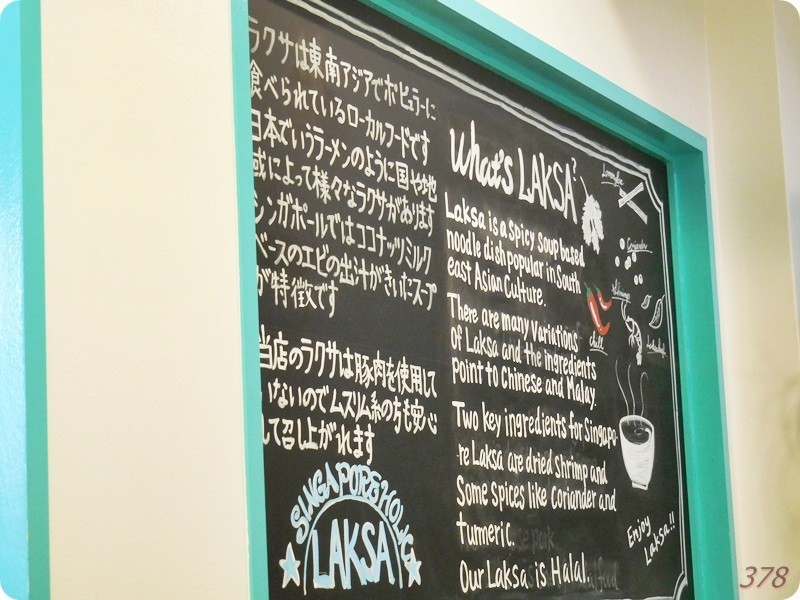 ラクサは東南アジアでポピュラーに
食べられているローカルフードです
日本でいうラーメンのように国や地
域によって様々なラクサがあります
シンガポールではココナッツミルク
ベースのエビの出汁がきいたスープ
が特徴です
当店のラクサは豚肉を使用して
いないのでムスリム系の方も安心
して召し上がれます
SINGAPOREHOLIC
LAKSA
What's LAKSA?
Laksa is a spicy soup based
noodle dish popular in South
east Asian Culture.
There are many variations
of Laksa and the ingredients
point to Chinese and Malay.
Two key ingredients for Singapo-
re Laksa are dried shrimp and
Some spices like coriander and
turmeric.
Our Laksa is Halal.
Coriander
chili
Enjoy
Laksa!!
378